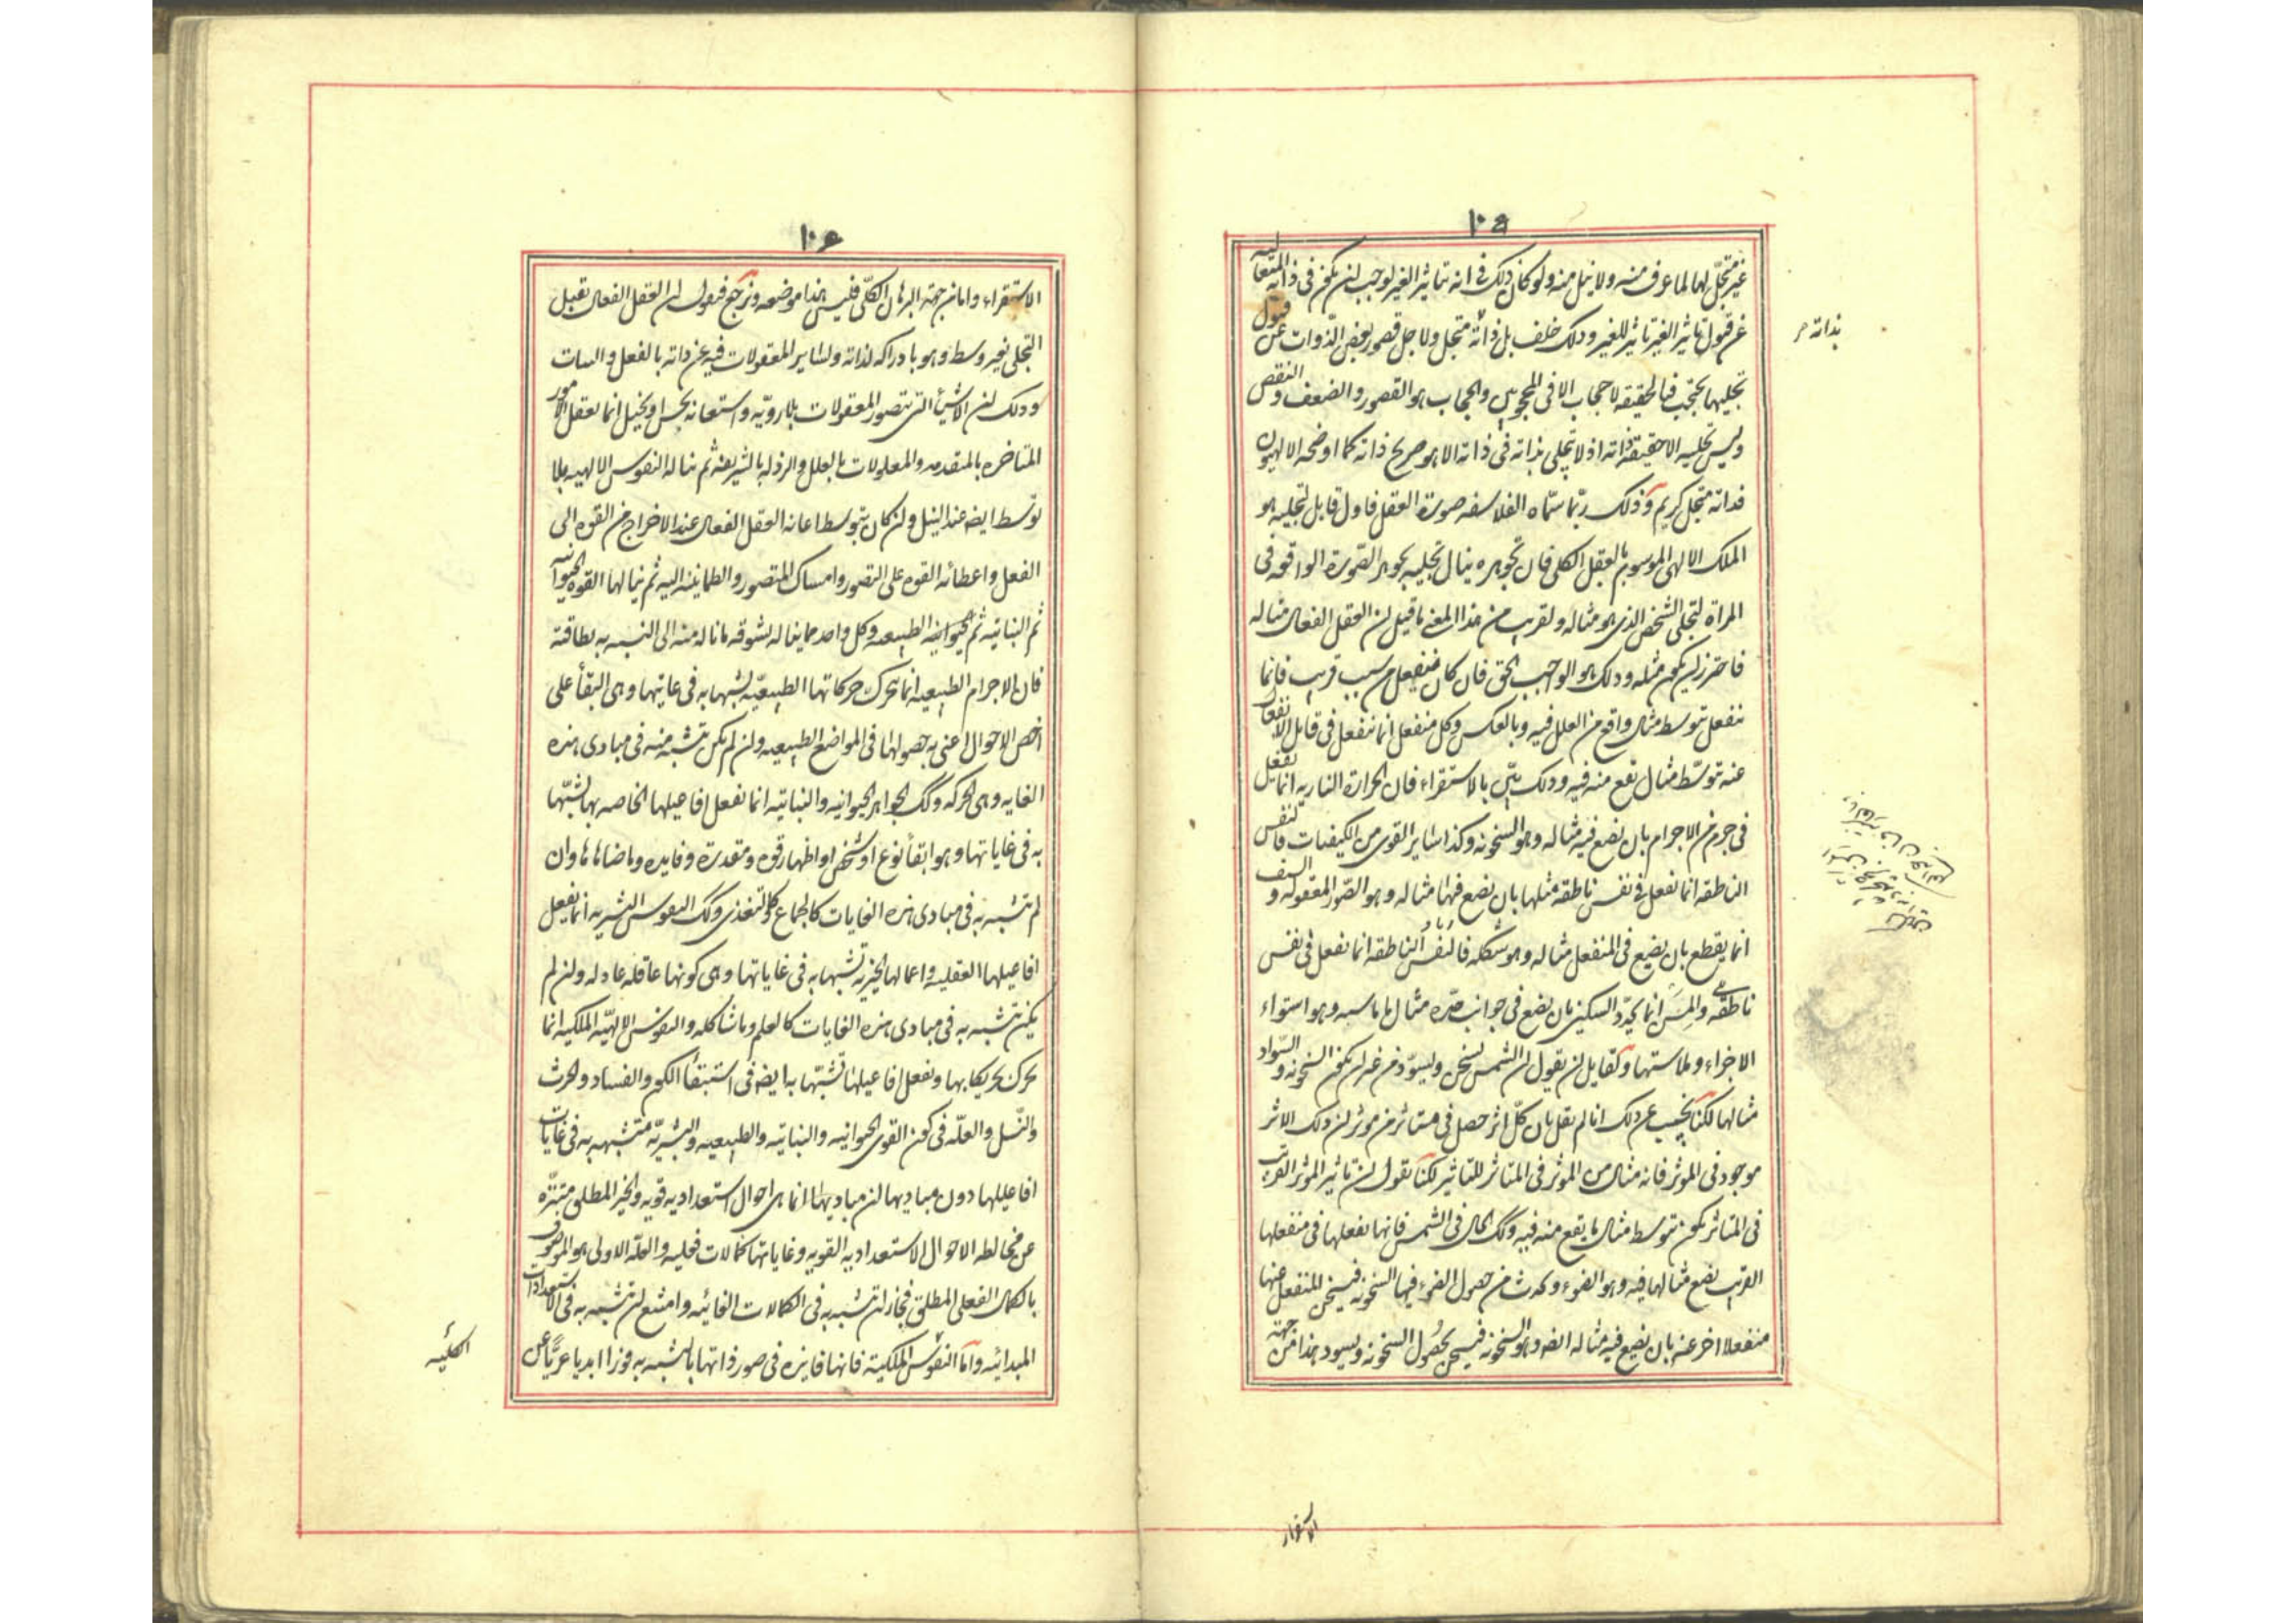 ١٠٥
غير متجل لها لما عرف منه ولا نيل منه ولو كان ذلك في ذاته بتاثير الغير لوجب ان يكون في ذاته المتعاليه
عن قبول تاثير الغير تاثير للغير وذلك خلف بل ذاته متجل ولاجل قصور بعض الذوات عن قبول
تجليها يحتجب فبالحقيقه لا حجاب الا في المحجوبين والحجاب هو القصور والضعف والنقص
وليس تجليه الا حقيقة ذاته اذ لا يتجلى بذاته في ذاته الا هو صريح ذاته كما اوضحه الالهيون
فذاته متجل كريم وذلك ربما سماه الفلاسفه صورة العقل فاول قابل لتجليه هو
الملك الالهي الموسوم بالعقل الكلي فان تجوهره ينال تجليه تجوهر الصورة الواقعه في
المراة لتجلي الشخص الذي هو مثاله ولقريب من هذا المعنى ما قيل ان العقل الفعال مثاله
فاحترز ان يكون مثله وذلك هو الواجب الحق فان كان منفعل من سبب قريب فانما
ينفعل بتوسط مثال واقع من العلل فيه وبالعكس وكل منفعل انما ينفعل في قابل الانفعال
عنه بتوسط مثال يقع منه فيه وذلك بين بالاستقراء فان الحرارة الناريه انما يفعل
في جرم من الاجرام بان يضع فيه مثاله وهو السخونه وكذا ساير القوى من الكيفيات فالنفس
الناطقه انما تفعل في نفس ناطقه مثلها بان يضع فيها مثاله وهو الصور المعقوله والسيف
انما يقطع بان يضيع في المنفعل مثاله وهو شكله فالنفس الناطقه انما تفعل في نفس
ناطقه والمسن انما يحدد السكين بان يضع في جوانب حده مثال ما ماسه وهو استواء
الاجزاء وملاستها ولقايل ان يقول ان الشمس تسخن ويسود من غير ان يكون السخونه والسواد
مثالها لكنا نجيب عن ذلك انا لم نقل بان كل اثر حصل في متاثر من موثر ان ذلك الاثر
موجود في الموثر فانه مثال من الموثر في المتاثر للتاثير لكنا نقول ان تاثير الموثر القريب
في المتاثر يكون بتوسط مثال ما يقع منه فيه وكك الحال في الشمس فانها تفعلها في منفعلها
القريب بضع مثالها فيه وهو الضوء ويحدث من حصول الضوء فيها السخونه فيسخن المنفعل عنها
منفعلا اخر عنه بان يضيع فيه مثاله ايضه وهو السخونه فيسخن بحصول السخونه ويسود هذا من جهة
بذاته
الاستقراء
١٠٦
الاستقراء واما من جهة البرهان الكلي فليس هذا موضعه ونرجع فنقول ان العقل الفعال تقبل
التجلي بغير وسط وهو بادراكه لذاته ولساير المعقولات فيه عن ذاته بالفعل والثبات
وذلك ان الاشياء التي تتصور المعقولات بلا رويه واستعانه بحس او تخيل انما تعقل الامور
المتاخره بالمتقدمه والمعلولات بالعلل والرذله بالشريفه ثم يناله النفوس الالهيه بلا
توسط ايضه عند النيل وان كان بتوسط اعانه العقل الفعال عند الاخراج من القوه الى
الفعل واعطائه القوه على التصور وامساك المتصور والطمانينه اليه ثم ينالها القوه الحيوانيه
ثم النباتيه ثم الحيوانيه الطبيعه وكل واحد مما يناله يشوقه ما ناله منه الى التشبه به بطاقته
فان الاجرام الطبيعيه انما تتحرك حركاتها الطبيعيه لتشبهها به في غايتها وهي البقاء على
اخص الاحوال اعني به حصولها في المواضع الطبيعيه وان لم يكن تتشبه منه في مبادى هذه
الغايه وهي الحركه وكك الجواهر الحيوانيه والنباتيه انما تفعل افاعيلها الخاصه بها لتشبهها
به في غاياتها وهو ابقاء نوع او شخص او اظهار قوه ومقدرة وفايده وما ضاهاها وان
لم يتشبه به في مبادى هذه الغايات كالجماع وكالتغذي وكك النفوس البشريه انما تفعل
افاعيلها العقليه واعمالها الخيريه تشبها به في غاياتها وهي كونها عاقله عادله وان لم
يكن تتشبه به في مبادى هذه الغايات كالعلم وما شاكله والنفوس الالهيه الملكيه انما
تحرك تحريكا بها وتفعل افاعيلها تشبها به ايضه في استبقاء الكون والفساد والحرث
والنسل والعله في كون القوى الحيوانيه والنباتيه والطبيعيه والبشريه متشبهه به في غايات
افاعيلها دون مباديها لان مباديها انما هي احوال استعداديه قويه والخير المطلق متنزه
عن مخالطه الاحوال الاستعداديه القويه وغاياتها كمالات فعليه والعله الاولى هو الموصوف
بالكمال الفعلي المطلق فجاز ان تتشبه به في الكمالات الغائيه وامتنع ان تتشبه به في الاستعدادات
المبدائيه واما النفوس الملكيه فانها فايزه في صور ذاتها بالتشبه به فوزا ابديا عريا عن
الكليه